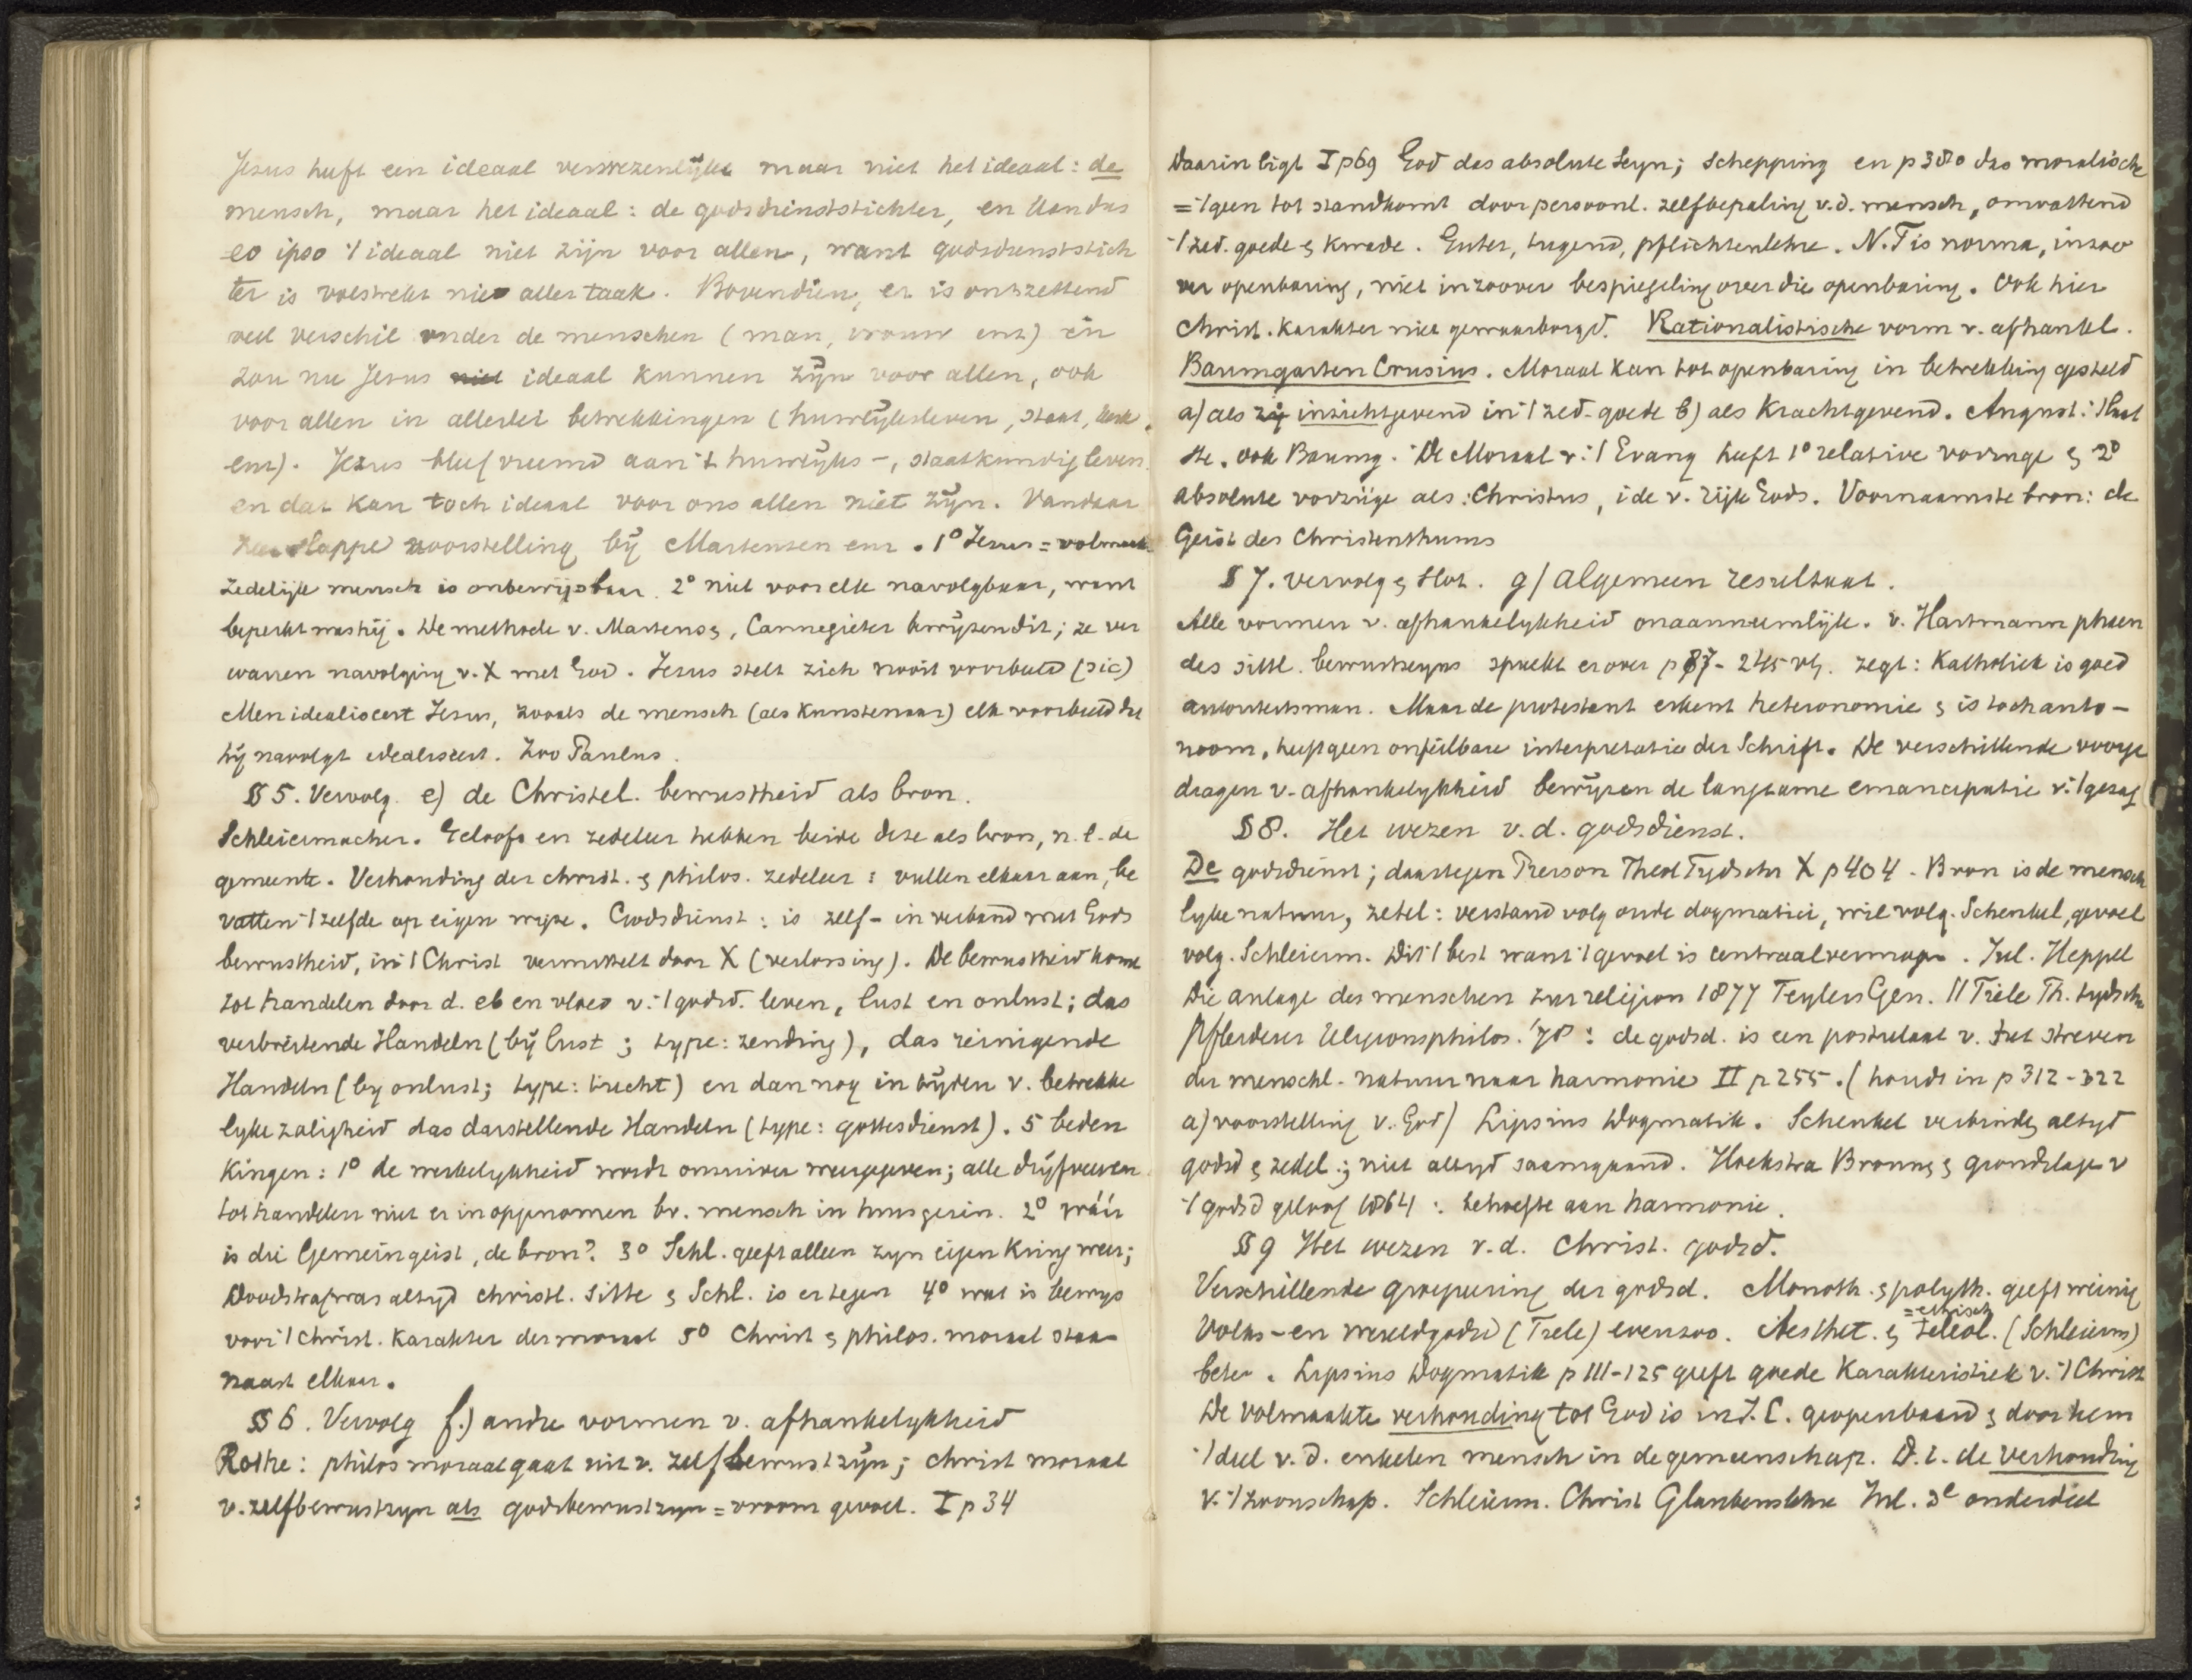 Jezus heeft een ideaal verwezenlijkt maar niet het ideaal: de
mensch, maar het ideaal: de godsdienststichter, en kan dus
eo ipso 't ideaal niet zijn voor allen, want godsdienststich
ter is volstrekt niet aller taak. Bovendien, er is ontzettend
veel verschil onder de menschen (man, vrouw enz) en
zou nu Jezus niet ideaal kunnen zijn voor allen, ook
voor allen in allerlei betrekkingen (huwlijksleven, staat, kerk
enz). Jezus bleef vreemd aan 't huwlijks-, staatkundig leven
en dat kan toch ideaal voor ons allen niet zijn. Vandaar
slappe voorstelling bij Martensen enz. 1° Jezus = volmaakt
zedelijk mensch is onbewijsbaar. 2° niet voor elk navolgbaar, want
beperkt was hij. De methode v. Martens, Cannegieter bewijzen dit; ze ver
warren navolging v. X met God. Jezus stelt zich nooit voorbeeld (sic)
Men idealiseert Jezus, zooals de mensch (als kunstenaar) elk voorbeeld dat
hij navolgt idealiseert. Zoo Paulus.
§ 5. Vervolg. e) de Christel. bewustheid als bron.
Schleiermacher. Geloofs en zedeleer hebben beide deze als bron, n.l. de
gemeente. Verhouding der christ. & philos. zedeleer: vullen elkaar aan, be
vatten 't zelfde op eigen wijze. Godsdienst: is zelf- in verband met Gods
bewustheid, in 't Christ vermittelt door X (verlossing). De bewustheid komt
tot handelen door d. eb en vloed v. 't godsd. leven, lust en onlust; das
verbreitende Handeln (bij lust; type: zending), das reinigende
Handeln (by onlust; type: tucht) en dan nog in tijden v. betrekke
lyke zaligheid das darstellende Handeln (type: gottesdienst). 5 beden
kingen: 1° de werkelykheid wordt onzuiver weergegeven; alle drijfveeren
tot handelen niet er in opgenomen bv. mensch in huisgezin. 2° wáár
is die Gemeingeist, de bron? 3° Schl. geeft alleen zyn eigen kring weer;
Doodstraf was altyd christl. Sitte & Schl. is er tegen 4° wat is bewys
voor 't Christ. karakter der moraal 5° Christ & philos. moraal staan
naast elkaar.
§ 6. Vervolg f.) andre vormen v. afhankelykheid
Rothe: philos moraal gaat uit v. zelfbewustzijn; christ moraal
v. zelfbewustzyn als godsbewustzyn = vroom gevoel. I p 34
Daarin ligt I p 69 God das absolute Seyn; Schepping en p 380 das moralische
= 'tgeen tot stand komt door persoonl. zelfbepaling v.d. mensch, omvattend
't zed. goede & kwade. Güter, tugend, pflichtenlehre. N.T is norma, inzoo
ver openbaring, niet inzoover bespiegeling over die openbaring. Ook hier
Christ. karakter niet gewaarborgd. Rationalistische vorm v. afhankel.
Baumgarten Crusius. Moraal kan tot openbaring in betrekking gesteld
a) als zij inzichtgevend in 't zed. goede b) als krachtgevend. August: 't laat
ste. ook Baumg. De Moraal v. 't Evang heeft 1° relative vorzüge & 2°
absolute vorzüge als: Christus, ide v. rijk Gods. Voornaamste bron: de
Geist des Christenthums
§ 7. vervolg & slot. g) algemeen resultaat.
Alle vormen v. afhankelykheid onaannemlijk. v. Hartmann phaen
des sittl. bewustseyns spreekt er over p 87 - 245 vlg. zegt: Katholiek is goed
autoriteitsman. Maar de protestant erkent heteronomie & is toch auto-
noom, heeft geen onfeilbare interpretatie der Schrift. De verschillende voorge
dragen v. afhankelykheid bewijzen de langzame emancipatie v. 't gezag
§ 8. Het wezen v.d. godsdienst.
De godsdienst; daartegen Pierson Theol Tydschr X p 404. Bron is de mensch
lyke natuur, zetel: verstand volg oude dogmatici, wil volg. Schenkel, gevoel
volg. Schleierm. Dit 't best want 't gevoel is centraalvermogen. Jul. Heppel
Die anlage des menschen zur religion 1877 Teylers Gen. // Tiele Th. tydschr
Pfleiderer Religionsphilos. '78: de godsd. is een postulaat v. het streven
der menschl. natuur naar harmonie II p 255. (houdt in p 312-322
a) voorstelling v. God) Lipsius Dogmatik. Schenkel verbindt altyd
godsd & zedel.; niet altyd saamgaand. Hoekstra Bronnen & grondslagen v
't godsd geloof 1864: behoefte aan harmonie.
§ 9 Het wezen v.d. Christ. godsd.
Verschillende groepeering der godsd. Monoth. & polyth. geeft weinig
Volks- en wereldgodsd (Tiele) evenzoo. Aesthet. & teleol. (Schleierm)
= ethisch
beter. Lipsius Dogmatik p 111-125 geeft goede karakteristiek v. 't Christ
De volmaakte verhouding tot God is in J. C. geopenbaard & door hem
't deel v. d. enkelen mensch in de gemeenschap. D. i. de verhouding
v. 't zoonschap. Schleierm. Christ Glaubenslehre Inl. 3e onderdeel